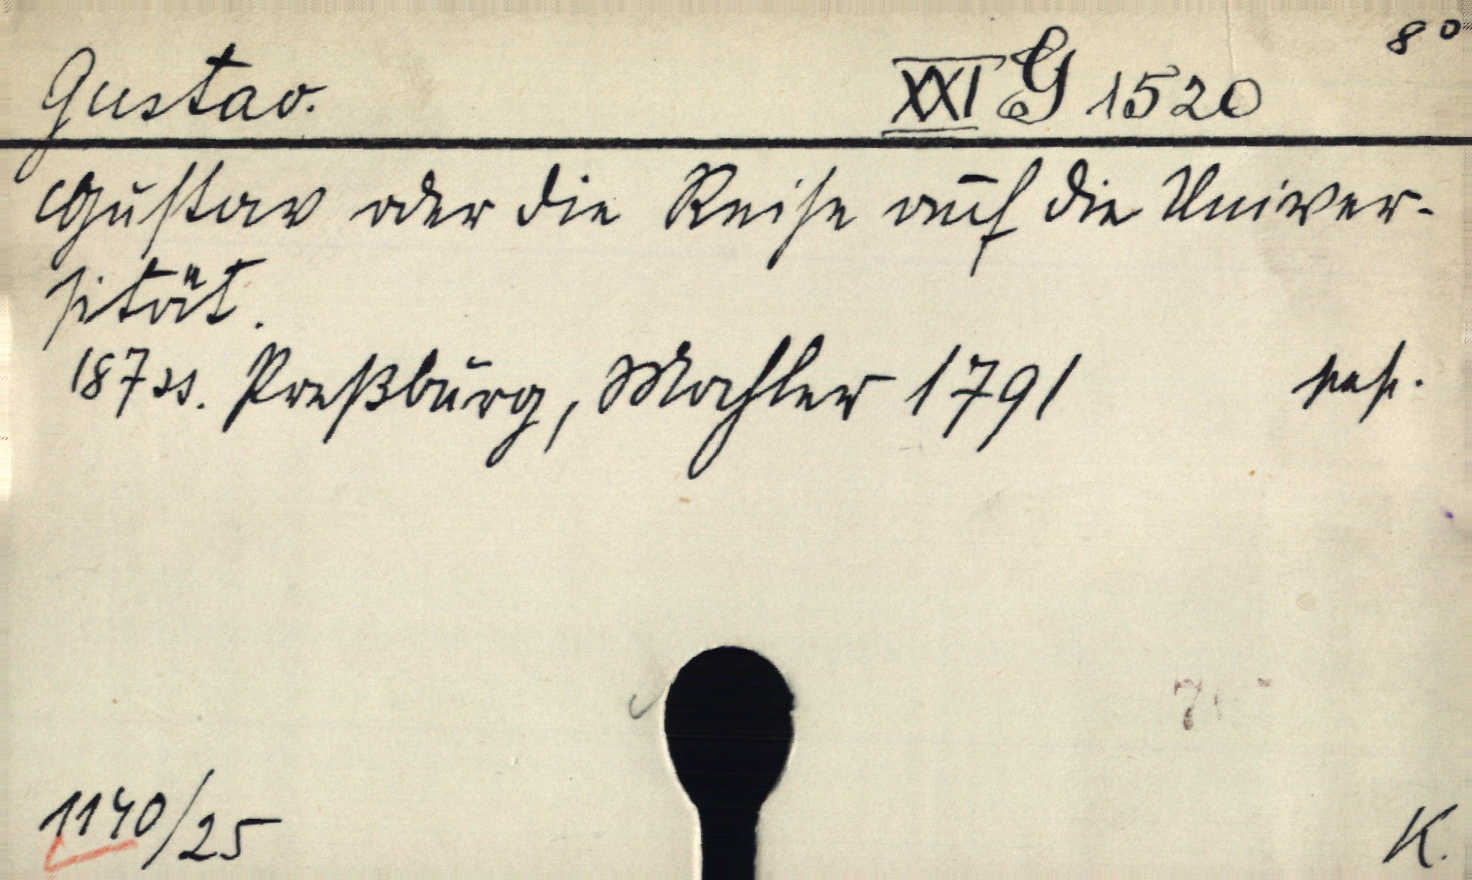 8°
Gustav. XXI G 1520
Gustav oder die Reise auf die Univer-
sität.
187 ss. Preßburg, Mahler 1791
1140/25 K.